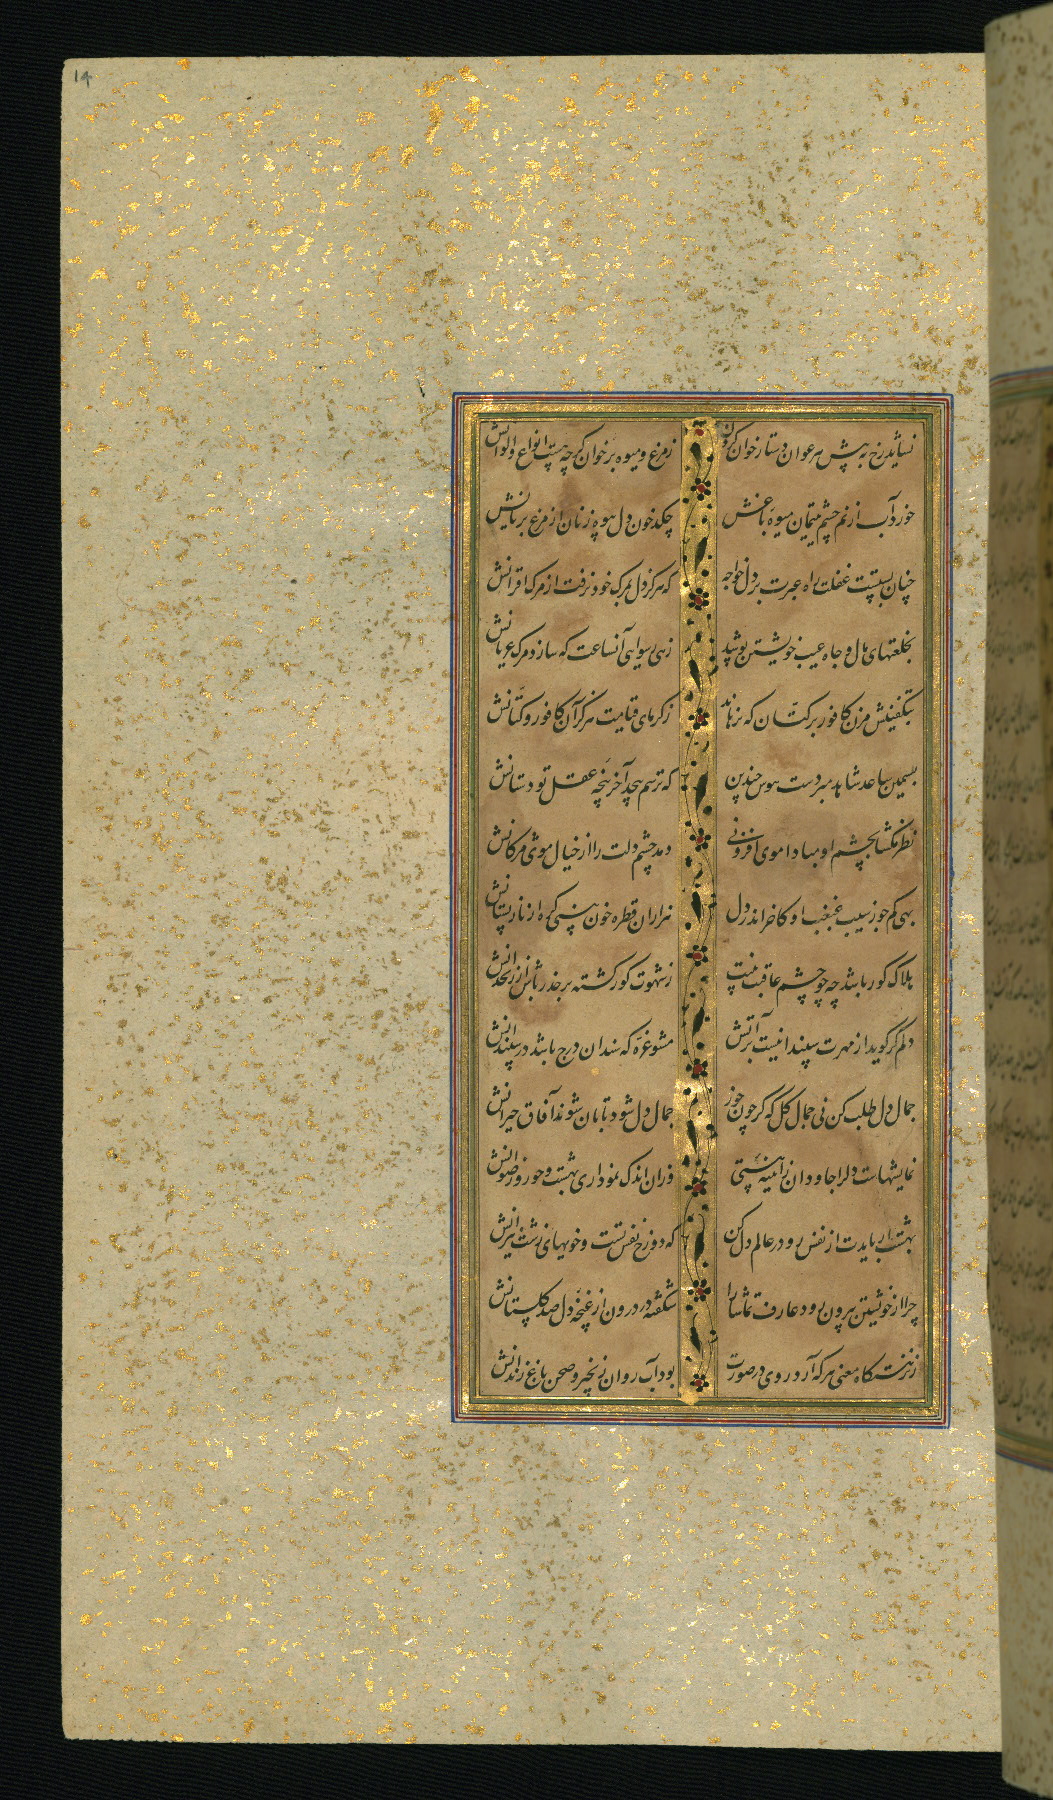 ۱۴
نشاید رخ به پیش هر عوان دستار خوان کردن
ز مرغ و میوه بر خوان گر چه هست انواع و الوانش
خورد آب از نم چشم یتیمان میوهٔ باغش
چکد خون دل بیوه زنان از مرغ بریانش
چنان بستست غفلت راه عبرت بر دل خواجه
که هرگز دل بمرگ خود نرفت از مرگ اقرانش
بخلعتهای مال و جاه عیب خویشتن پوشید
زهی رسوایی آنساعت که سازد مرگ عریانش
بتکفینش مزن کافور بر کتّان که نرهاند
ز گرمای قیامت هرگز آن کافور و کتّانش
بسیمین ساعد شاهد مبر دست هوس چندین
که ترسم پیچد آخر پنجه عقل تو دستانش
نظر مگشا بچشم او مبادا موی افزونی
دمد چشم دلت را از خیال موی مژگانش
بهی کم جو ز سیب غبغب او کاخر اندر دل
هزاران قطره خون بینی گره از نار پستانش
هلاک کور باشد چه چو چشم عاقبت
ز شهوت کور گشته بر حذر باش از زنخدانش
دلم گر گوید از مهرت سپند آنیست بر آتش
مشو غره که سندان درج باشد در سپندانش
جمال دل طلب کن نی جمال گل که گر چون حور
جمال دل شود تابان شوند آفاق حیرانش
نمایشهاست دلرا جاودان ز آیینه هستی
وزان اندک نموداری بهشت و حور و رضوانش
بهشت ار بایدت از نفس رو در عالم دل کن
که دوزخ نفس تست و خویهای زشت نیرانش
چرا از خویشتن بیرون رود عارف تماشا را
شکفته در درون از غنچهٔ دل صد گلستانش
ز نزهتگاه معنی هر که آرد روی در صورت
بود آب روان زنجیر و صحن باغ زندانش